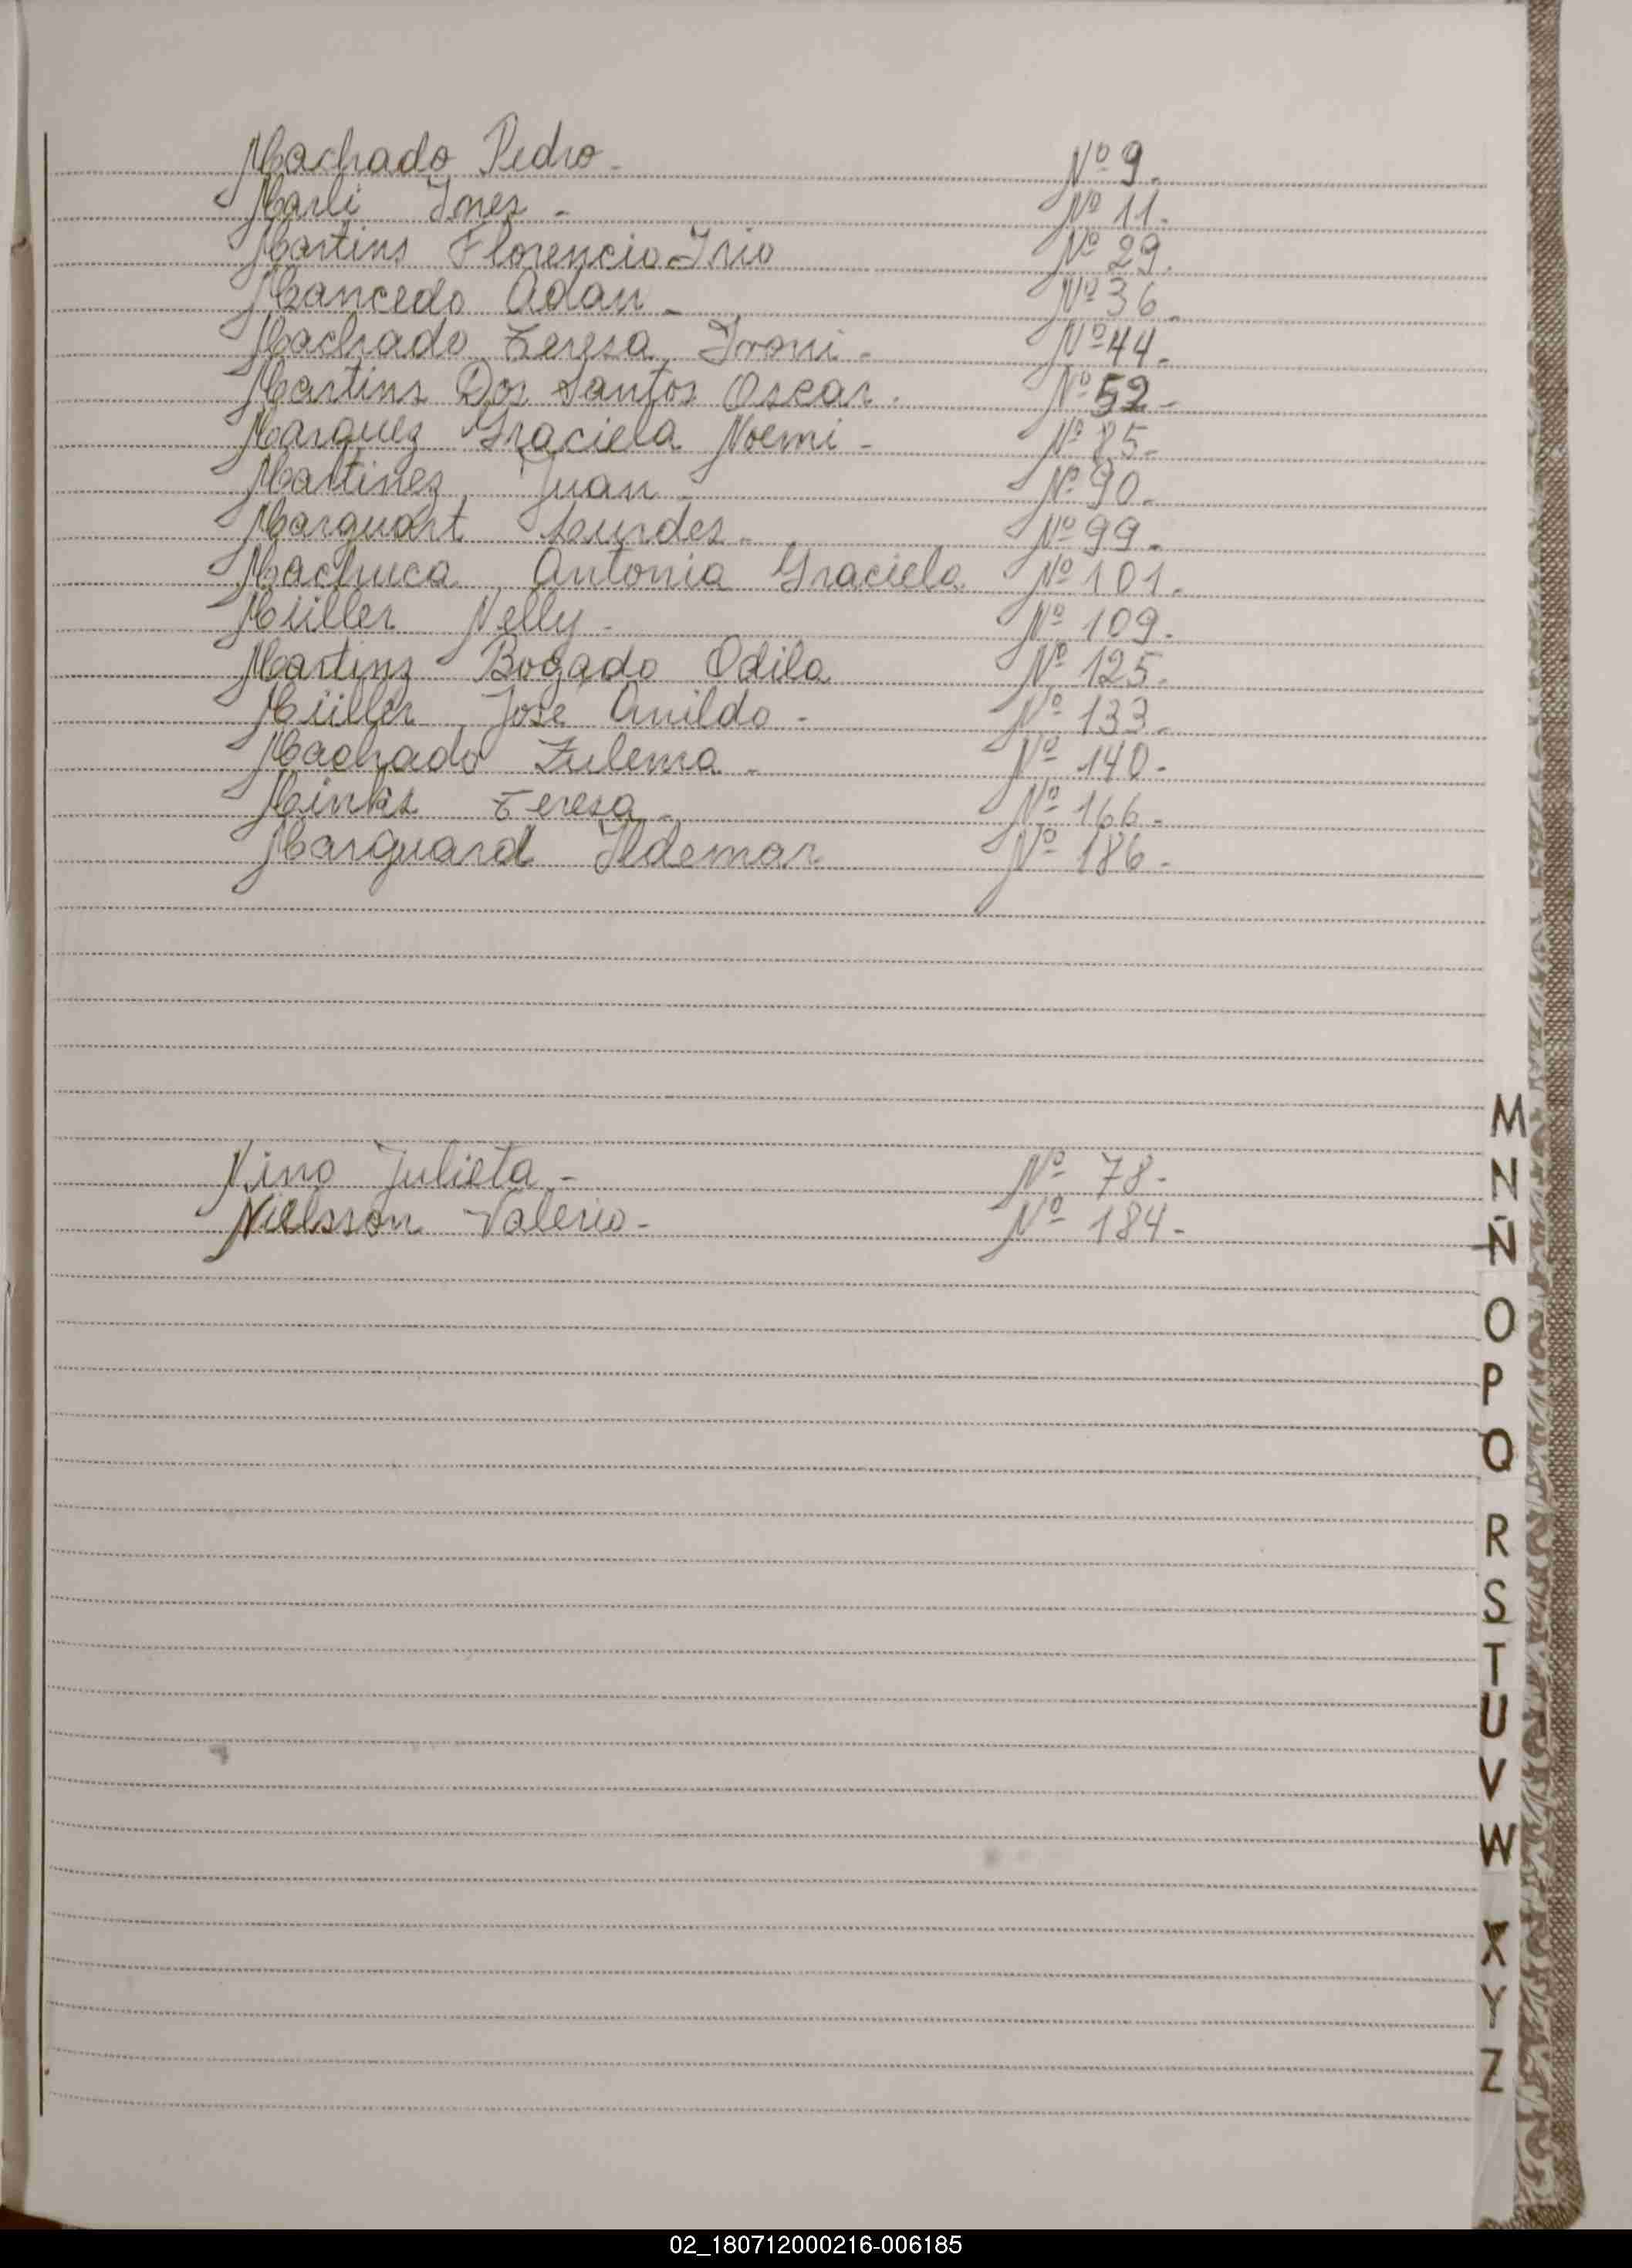 Machado Pedro - Nº 9.
Marli Ines - Nº 11.
Martins Florencio Irio Nº 29.
Mancedo Adan - Nº 36.
Machado Teresa Ivoni - Nº 44.
Martins Dos Santos Oscar. Nº 52 -
Marquez Graciela Noemi - Nº 85 -
Martinez Juan - Nº 90 -
Marquart Lurdes - Nº 99 -
Machuca Antonia Graciela Nº 101.
Müller Nelly - Nº 109.
Martins Bogado Odila Nº 125.
Müller Jose Anildo - Nº 133.
Machado Zulema - Nº 140 -
Teresa - Nº 166 -
Marquard Ildemar Nº 186 -
Nino Julieta - Nº 78 -
Nielsson Valerio - Nº 184 -
M
N
Ñ
O
P
Q
R
S
T
U
V
W
X
Y
Z
02_180712000216-006185